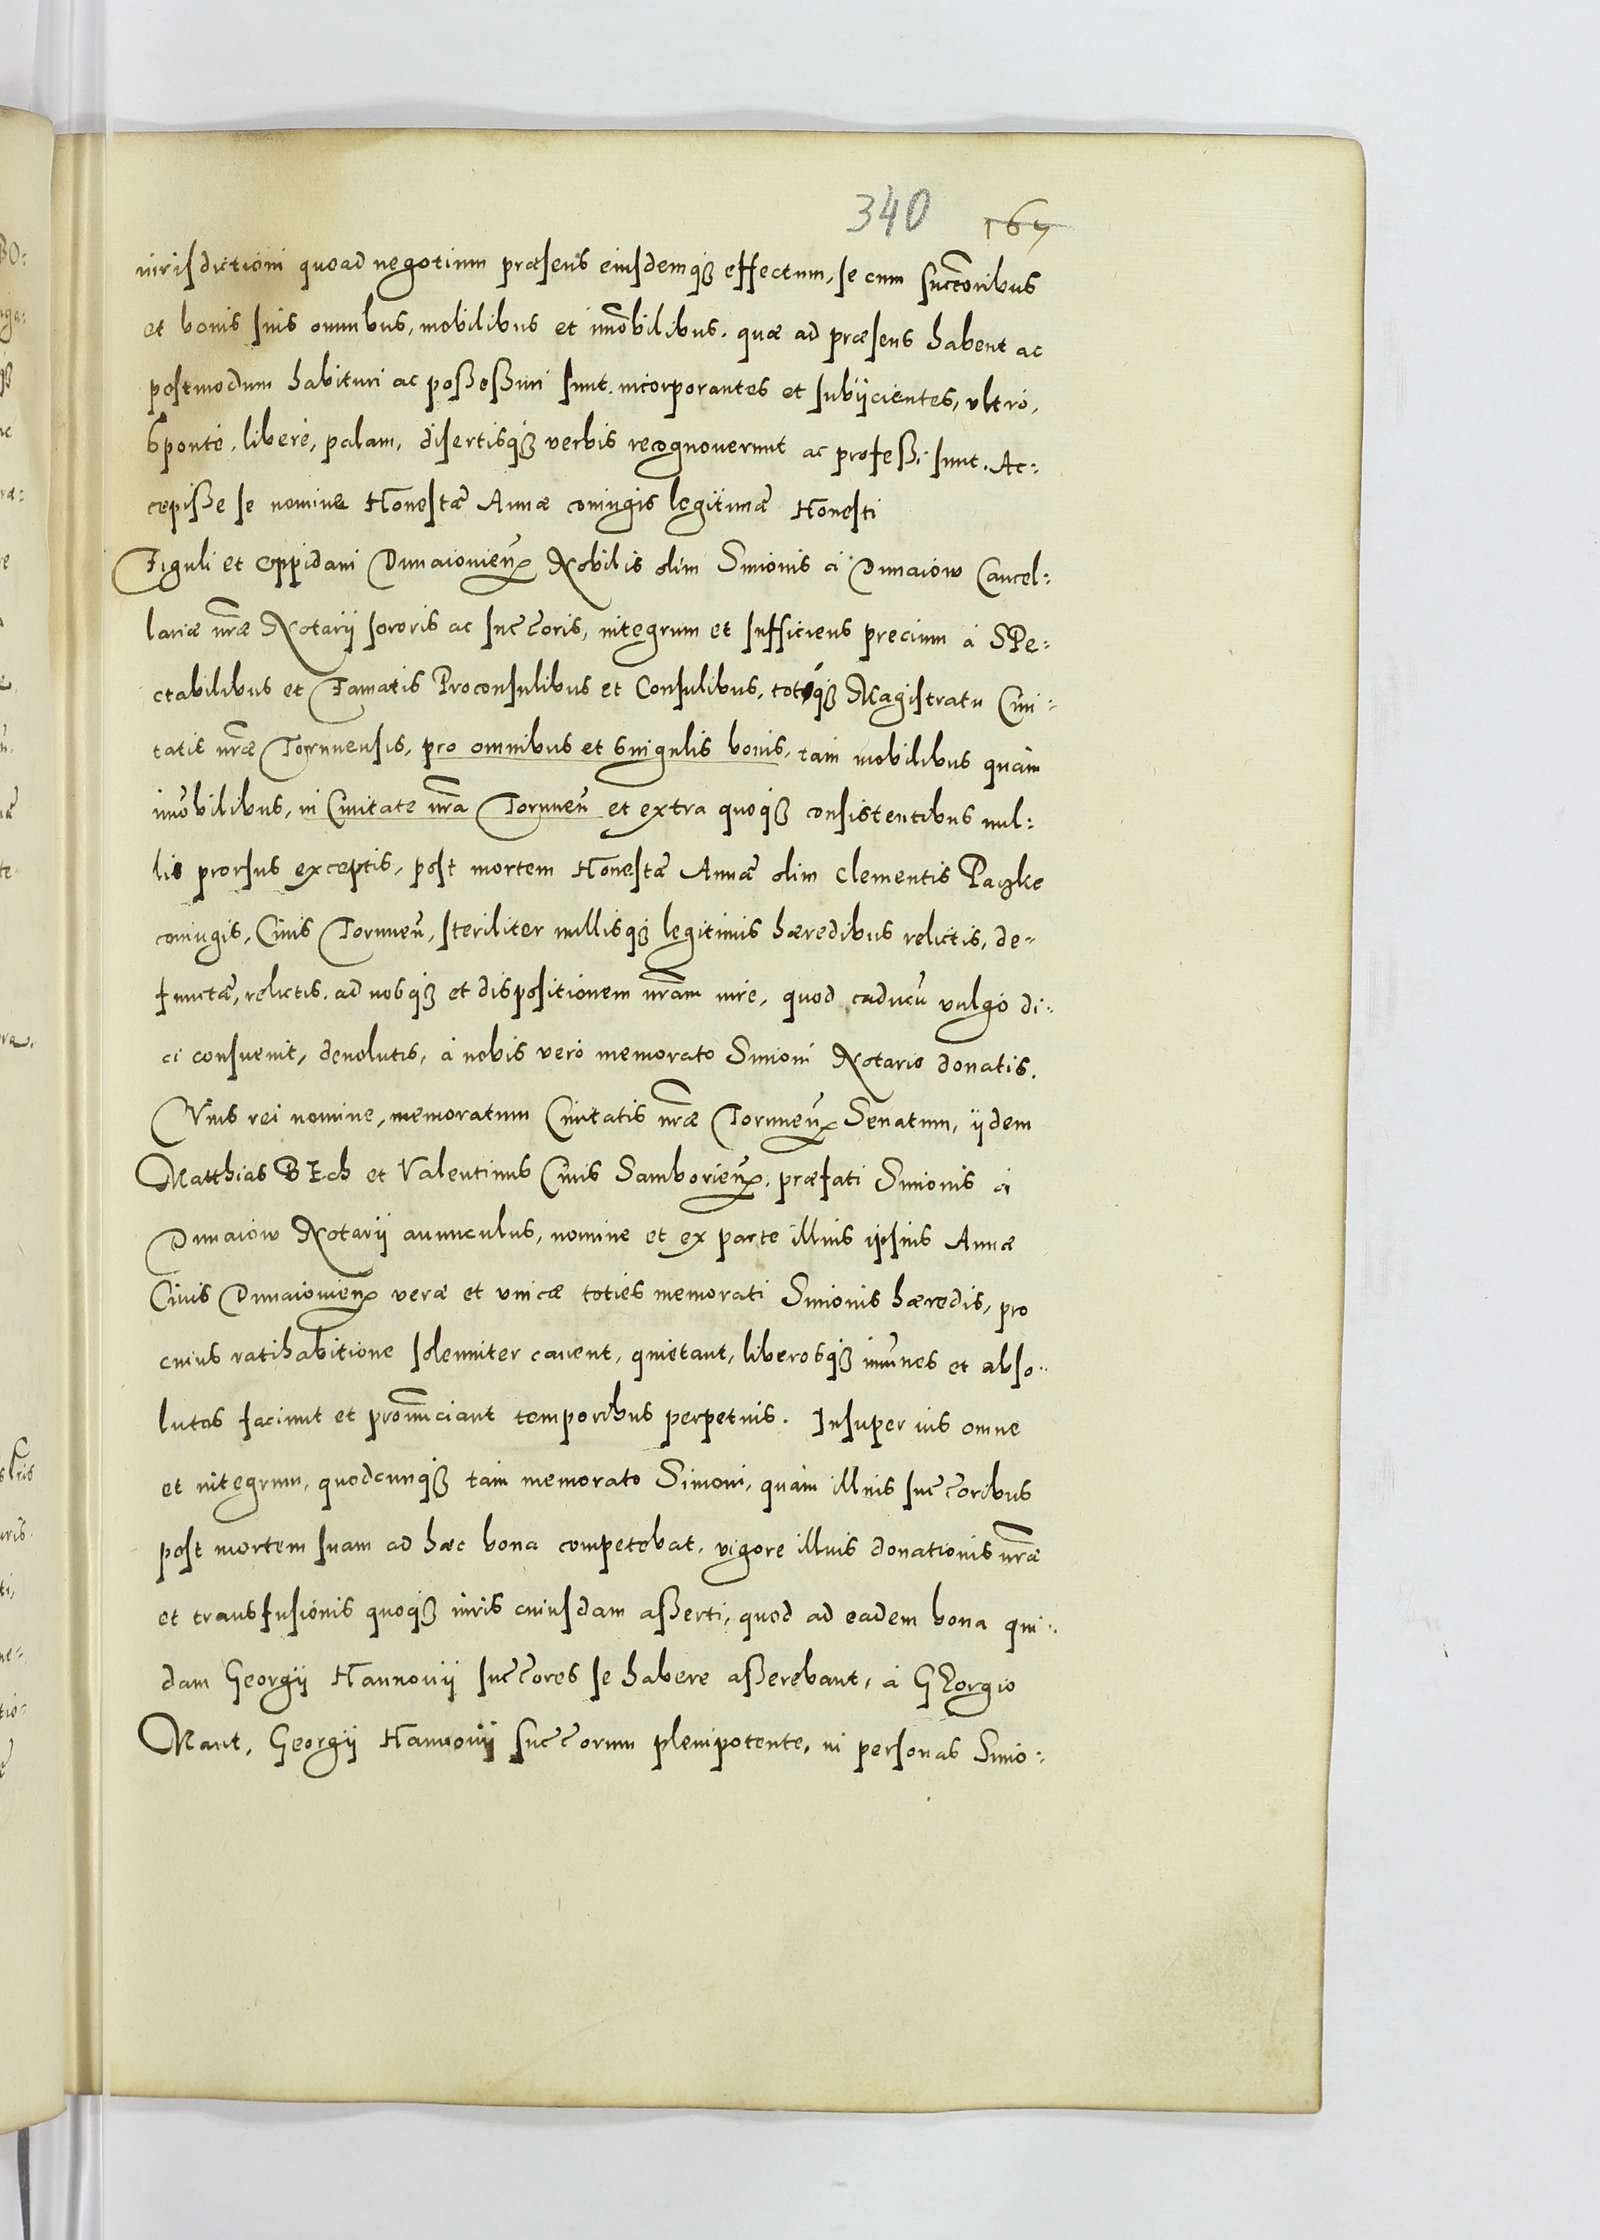 340 167
iurisdictioni quoad negotium præsens eiusdemq3 effectum, se cum succ͠oribus
et bonis suis omnibus, mobilibus et im͠obilibus. quæ ad præsens habent ac
postmodum habituri ac poßeßuri sunt. incorporantes et subijcientes, vltrò,
Spontè, liberè, palam, disertisq3 verbis recognouerunt ac profeßi sunt. Ac:
cepiße se nomine Honestæ Annæ coniugis legitimæ Honesti
Figuli et Oppidani Dunaiouien͠ Nobilis olim Simonis à Dunaiow Cancel:
lariæ nr͠æ Notarij sororis ac succ͠oris, integrum et sufficiens precium à SPe:
ctabilibus et Famatis Proconsulibus et Consulibus, totóq3 Magistratu Ciui:
tatis nr͠æ Torunensis, pro omnibus et singulis bonis, tam mobilibus quàm
im͠obilibus, in Ciuitate nr͠a Torunen͠ et extra quoq3 consistentibus nul:
lis prorsus exceptis, post mortem Honestæ Annæ olim Clementis Paczke
coniugis, Ciuis Torunen͠, steriliter nullisq3 legitimis hæredibus relictis, de-
functæ, relictis. ad nosq3 et dispositionem nr͠am iure, quod caducū vulgò di:
ci consueuit, deuolutis, à nobis verò memorato Simoni Notario donatis.
Cuius rei nomine, memoratum Ciuitatis nr͠æ Torunen͠ Senatum, ijdem
Matthias BEch et Valentinus Ciuis Samborien͠, præfati Simonis à
Dunaiow Notarij auunculus, nomine et ex parte illius ipsius Annæ
Ciuis Dunaiouien͠ veræ et vnicæ toties memorati Simonis hæredis, pro
cuius ratihabitione solenniter cauent, quietant, liberosq3 im͠unes et abso:
lutos faciunt et pron͠unciant temporibus perpetuis. Insuper ius omne
et integrum, quodcunq3 tam memorato Simoni, quàm illius succ͠oribus
post mortem suam ad hæc bona competebat, vigore illius donationis nr͠æ
et transfusionis quoq3 iuris cuiusdam aßerti, quod ad eadem bona qui:
dam Georgij Hannouij succ͠ores se habere aßerebant, à GEorgio
Mant, Georgij Hannouij succ͠orum plenipotente, in personas Simo: